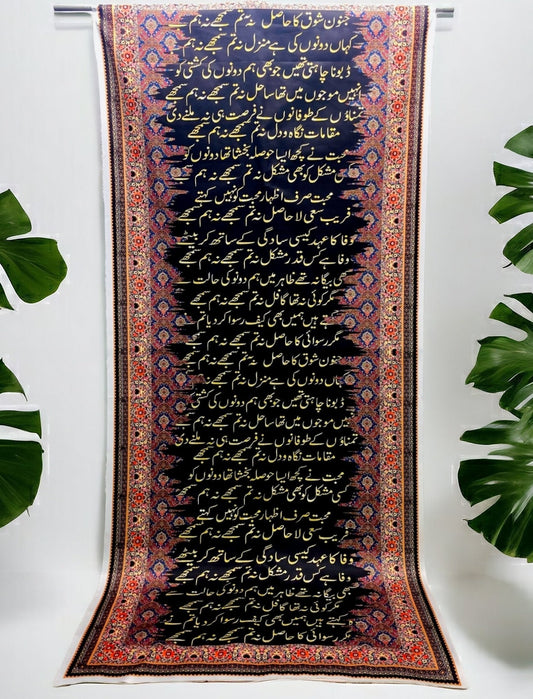 جنونِ شوق کا حاصل نہ تم سمجھے نہ ہم سمجھے
کہاں دونوں کی ہے منزل نہ تم سمجھے نہ ہم سمجھے
ڈبونا چاہتی تھیں جو بھی ہم دونوں کی کشتی کو
نہیں موجوں میں تھا ساحل نہ تم سمجھے نہ ہم سمجھے
تمناؤں کے طوفانوں نے فرصت ہی نہ ملنے دی
مقامات نگاہ و دل نہ تم سمجھے نہ ہم سمجھے
محبت نے کچھ ایسا حوصلہ بخشا تھا دونوں کو
مشکل کو بھی مشکل نہ تم سمجھے نہ ہم سمجھے
محبت صرف اظہار محبت کو نہیں کہتے
فریب سعی لا حاصل نہ تم سمجھے نہ ہم سمجھے
وفا کا عہد کیسی سادگی کے ساتھ کر بیٹھے
وفا ہے کس قدر مشکل نہ تم سمجھے نہ ہم سمجھے
بھی بیگانہ تھے ظاہر میں ہم دونو کی حالت سے
مگر کوئی نہ تھا غافل نہ تم سمجھے نہ ہم سمجھے
ہیں ہمیں بھی کیف رسوا کر دیا تم نے
مگر رسوائی کا حاصل نہ تم سمجھے نہ ہم سمجھے
جنون شوق کا حاصل نہ تم سمجھے نہ ہم سمجھے
ہاں دونوں کی ہے منزل نہ تم سمجھے نہ ہم سمجھے
ڈبونا چاہتی تھیں جو بھی ہم دونوں کی کشتی
نہیں موجوں میں تھا ساحل نہ تم سمجھے نہ ہم سمجھے
تمناؤں کے طوفانوں نے فرصت ہی نہ ملنے دی
مقامات نگاہ و دل نہ تم سمجھے نہ ہم سمجھے
محبت نے کچھ ایسا حوصلہ بخشا تھا دونوں کو
کسی مشکل کو بھی مشکل نہ تم سمجھے نہ ہم سمجھے
محبت صرف اظہار محبت کو نہیں کہتے
فریب سعی لا حاصل نہ تم سمجھے نہ ہم سمجھے
وفا کا عہد کیسی سادگی کے ساتھ کر بیٹھے
وفا ہے کس قدر مشکل نہ تم سمجھے نہ ہم سمجھے
بھی بیگانہ تھے ظاہر میں ہم دونو کی حالت سے
مگر کوئی نہ تھا غافل نہ تم سمجھے نہ ہم سمجھے
کہتے ہیں ہمیں بھی کیف رسوا کر دیا تم نے
مگر رسوائی کا حاصل نہ تم سمجھے نہ ہم سمجھے